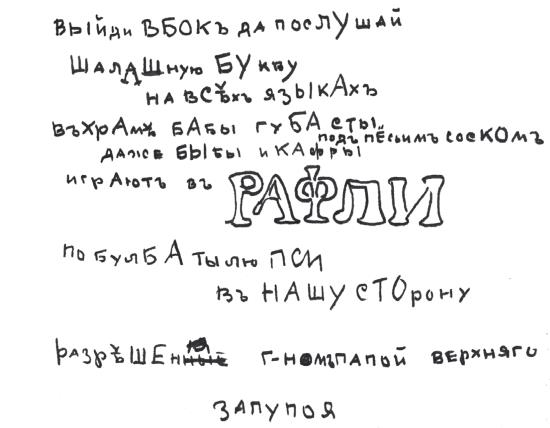 выйди ВБОКЪ да послУшай
ШалАШную БУкву
на всѣхъ языкАхъ
въхрАмѣ бАбы гуБА сты
подъ пёсьимъ соскомъ
даже бы бы и кАфры
игрАютъ въ РАФЛИ
по булБА тылю пси
въ НАШУ сТОрону
разрѣШЕн г-номъпапой верхняго
запупоя